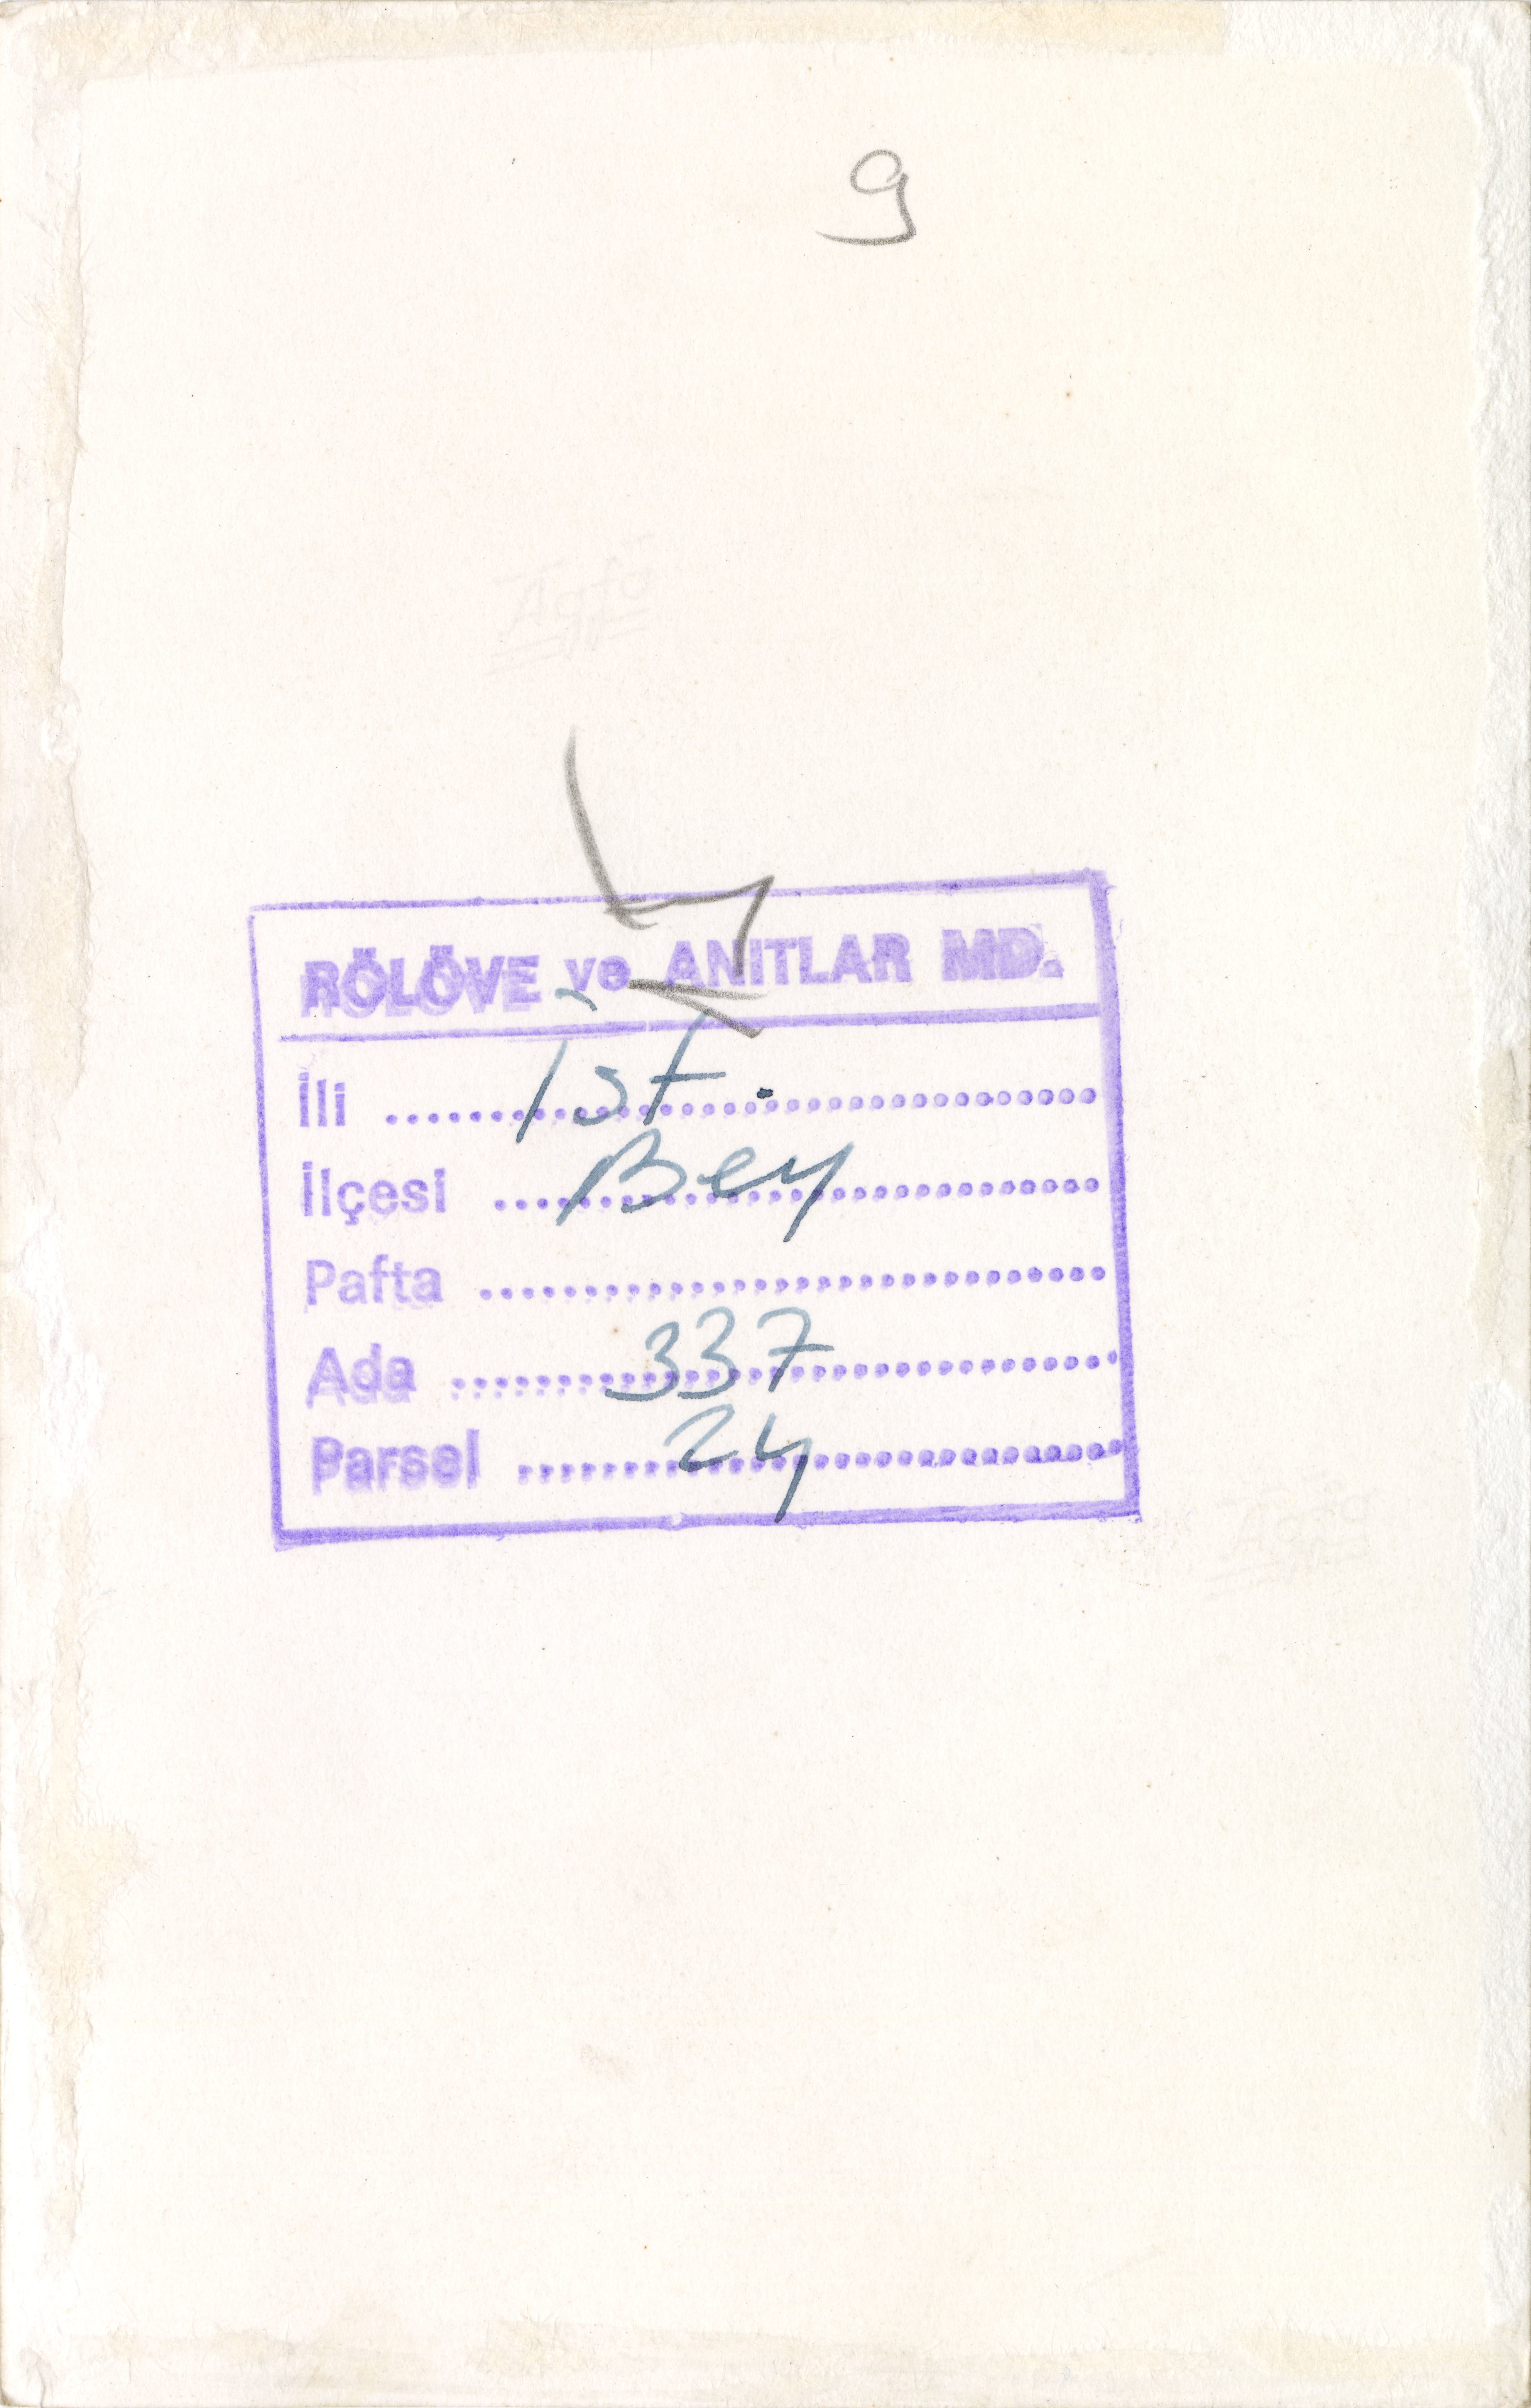 9
RÖLÖVE ve ANITLAR MD.
İli .......... İst. ..........
İlçesi .......... Bey ..........
Pafta ..........
Ada .......... 337 ..........
Parsel .......... 24 ..........